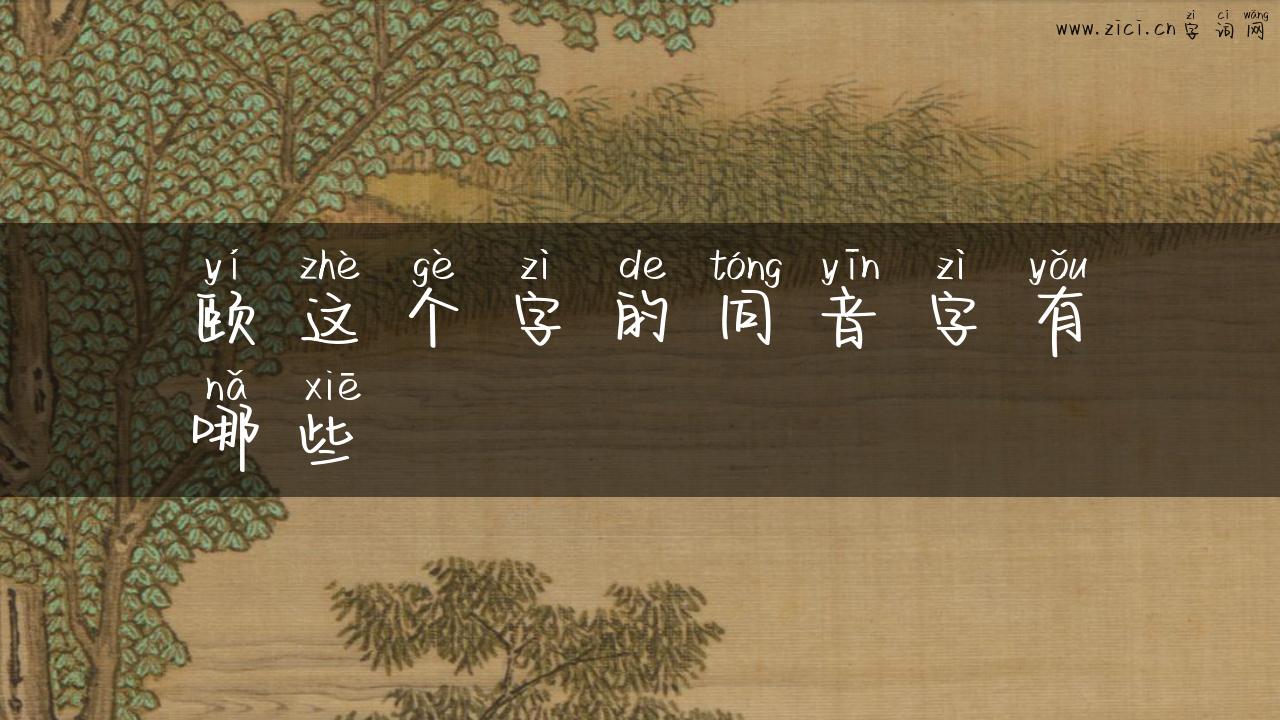 zì cí wǎng
www.zici.cn字词网
yí zhè gè zì de tóng yīn zì yǒu
颐这个字的同音字有
nǎ xiē
哪些